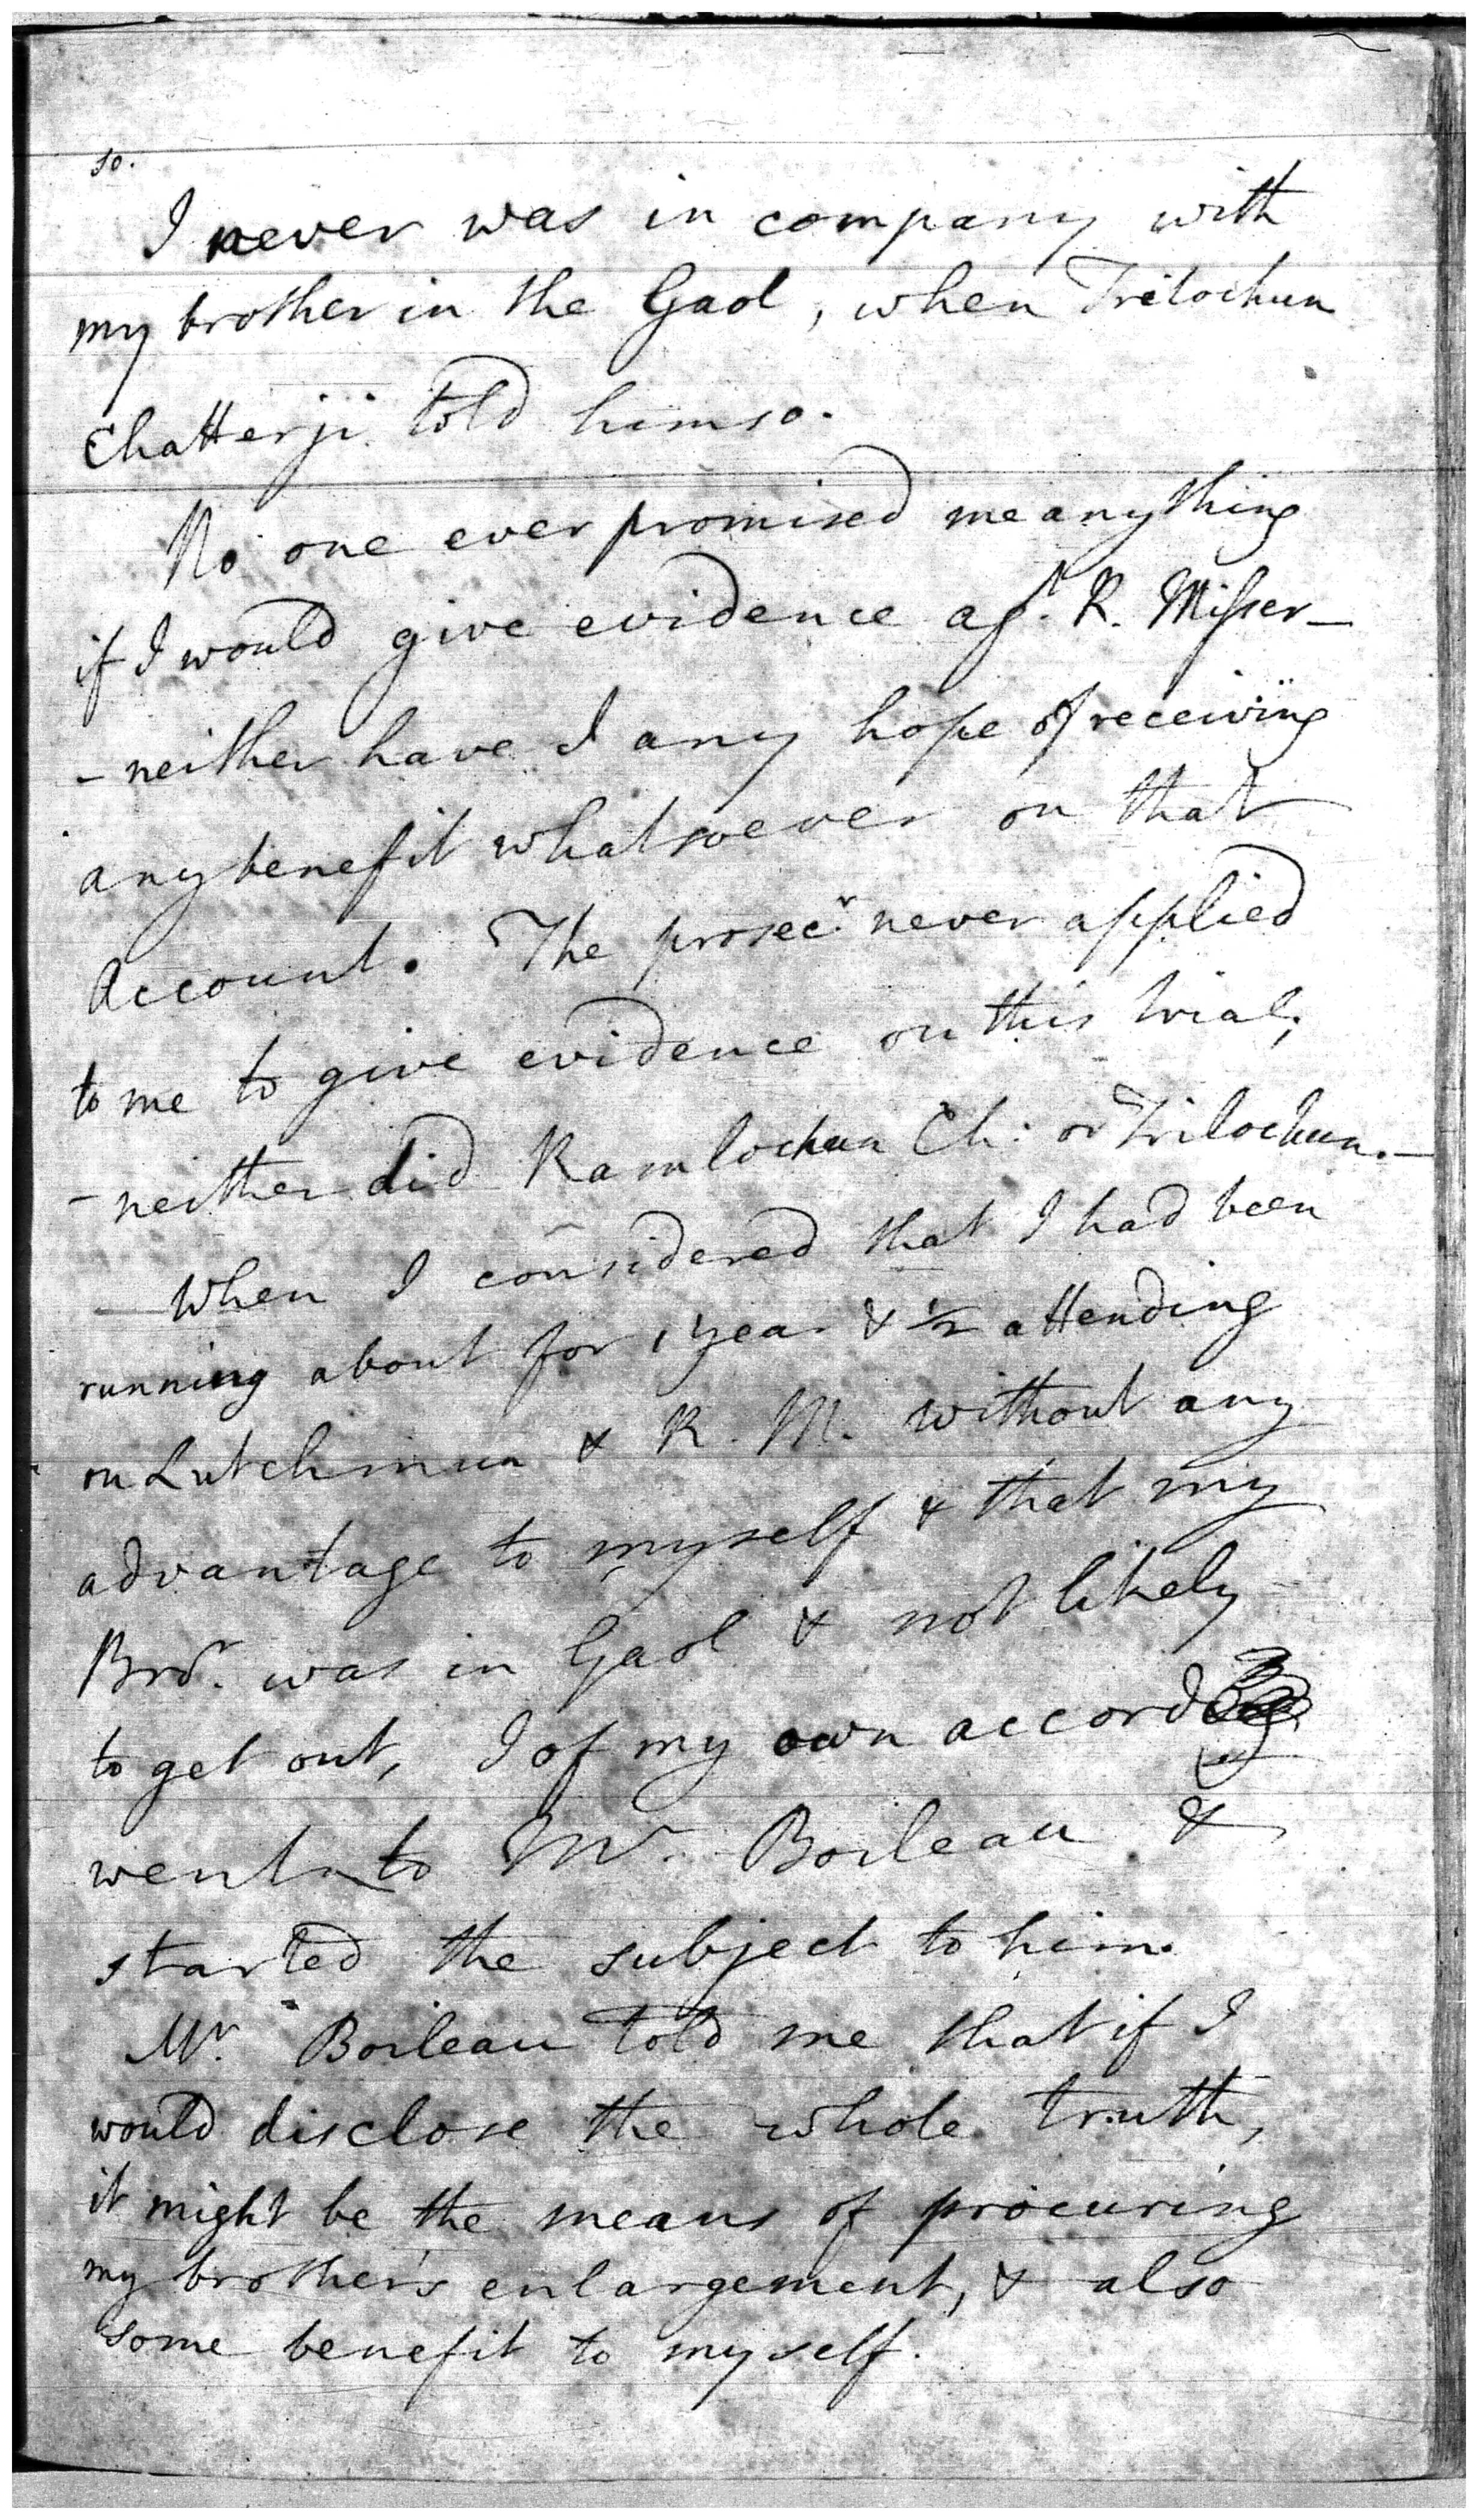 so.
I never was in company with
my brother in the Gaol, when Trilochun
Chatterji told him so.
No one ever promised me anything
if I would give evidence agt. R. Misser—
- neither have I any hope of receiving
any benefit whatsoever on that
Account. The prosecr. never applied
to me to give evidence on this trial;
- neither did Ramlochun Ch: or Trilochun.—
— When I considered that I had been
running about for 1 year & 1/2 attending
on Lutchmun & R. M. without any
advantage to myself & that my
Bror. was in Gaol & not likely
to get out, I of my own accord
went to Mr. Boileau &
started the subject to him.
Mr. Boileau told me that if I
would disclose the whole truth,
it might be the means of procuring
my brother's enlargement, & also
some benefit to myself.